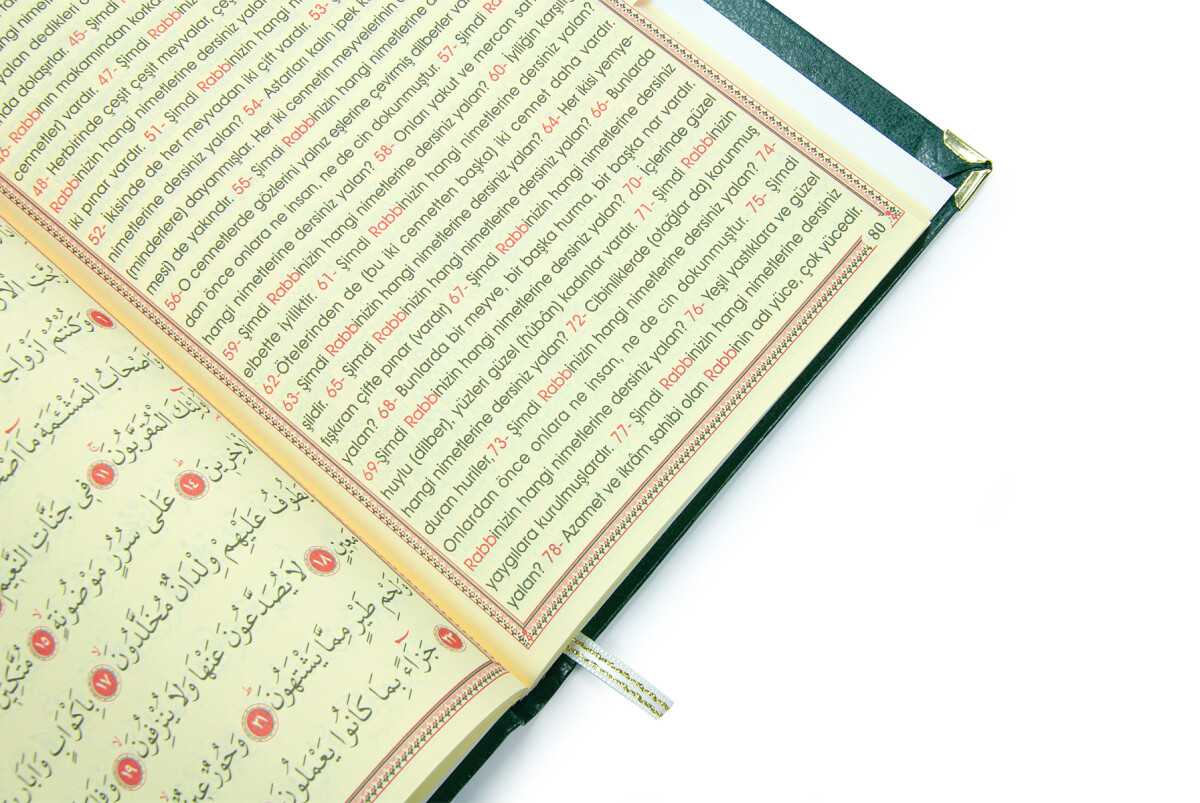 yalan dedikleri c
da dolaşırlar. 45- Şimdi
46- Rabbının makamından korka
cennetler) vardır. 47- Şimdi Rabbinizin hangi
48- Herbirinde çeşit çeşit meyvalar, çeş
Rabbinizin hangi nimetlerine dersiniz yalan
iki pınar vardır. 51- Şimdi Rabbinizin hangi ni
52- İkisinde de her meyvadan iki çift vardır. 53- Şimdi
nimetlerine dersiniz yalan? 54- Astarları kalın ipek k
(minderlere) dayanmışlar. Her iki cennetin meyvelerinin
mesi de yakındır. 55- Şimdi Rabbinizin hangi nimetlerine
56-O cennetlerde gözlerini yalnız eşlerine çevirmiş dilberler var
dan önce onlara ne insan, ne de cin dokunmuştur. 57- Şimdi Rabb
hangi nimetlerine dersiniz yalan? 58- Onları yakut ve mercan san
59- Şimdi Rabbinizin hangi nimetlerine dersiniz yalan? 60- İyiliğin karşılı
elbette iyiliktir. 61- Şimdi Rabbinizin hangi nimetlerine dersiniz yalan?
62- Ötelerinden de (bu iki cennetten başka) iki cennet daha vardır.
63- Şimdi Rabbinizin hangi nimetlerine dersiniz yalan? 64- Her ikisi yemye-
şildir. 65- Şimdi Rabbinizin hangi nimetlerine dersiniz yalan? 66- Bunlarda
fışkıran çifte pınar (vardır) 67- Şimdi Rabbinizin hangi nimetlerine dersiniz
yalan? 68- Bunlarda bir meyve, bir başka hurma, bir başka nar vardır.
69-Şimdi Rabbinizin hangi nimetlerine dersiniz yalan? 70- İçlerinde güzel
huylu (dilber), yüzleri güzel (hûbân) kadınlar vardır. 71- Şimdi Rabbinizin
hangi nimetlerine dersiniz yalan? 72- Cibinliklerde (otağlar da) korunmuş
duran huriler, 73- Şimdi Rabbinizin hangi nimetlerine dersiniz yalan? 74-
Onlardan önce onlara ne insan, ne de cin dokunmuştur. 75- Şimdi
Rabbinizin hangi nimetlerine dersiniz yalan? 76- Yeşil yastıklara ve güzel
yaygılara kurulmuşlardır. 77- Şimdi Rabbinizin hangi nimetlerine dersiniz
yalan? 78- Azamet ve ikrâm sahibi olan Rabbinin adı yüce, çok yücedir.
80
وَكُنْتُمْ اَزْوَاجًا
الْمَشْئَمَةِ مَا
الْمُقَرَّبُونَ ۝١١ فِى جَنَّاتِ النَّعِيمِ
الْاٰخِرِينَ ۝١٤ عَلٰى سُرُرٍ مَوْضُونَةٍ ۝١٥
عَلَيْهِمْ وِلْدَانٌ مُخَلَّدُونَ ۝١٧ بِاَكْوَابٍ
۝١٨ لَا يُصَدَّعُونَ عَنْهَا وَلَا يُنْزِفُونَ ۝١٩
طَيْرٍ مِمَّا يَشْتَهُونَ ۝٢١ وَحُورٌ عِينٌ
جَزَاءً بِمَا كَانُوا يَعْمَلُونَ